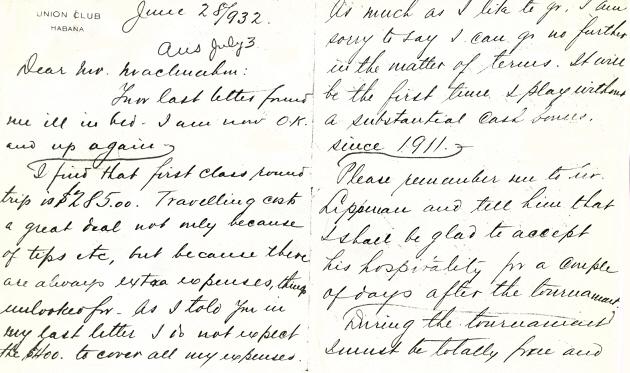 UNION CLUB
HABANA
June 28/932.
Ans July 3
Dear Mr.
Your last letter found
me ill in bed - I am now O.K.
and up again
I find that first class round
trip is $285.00. Travelling costs
a great deal not only because
of tips etc, but because there
are always extra expenses, things
unlooked for - As I told you in
my last letter I do not expect
the $400. to cover all my expenses.
As much as I like to go, I am
sorry to say I can go no further
in the matter of terms. It will
be the first time I play without
a substantial cash bonus,
since 1911.
Please remember me to Mr.
Lippman and tell him that
I shall be glad to accept
his hospitality for a couple
of days after the tournament.
During the tournament
I must be totally free and